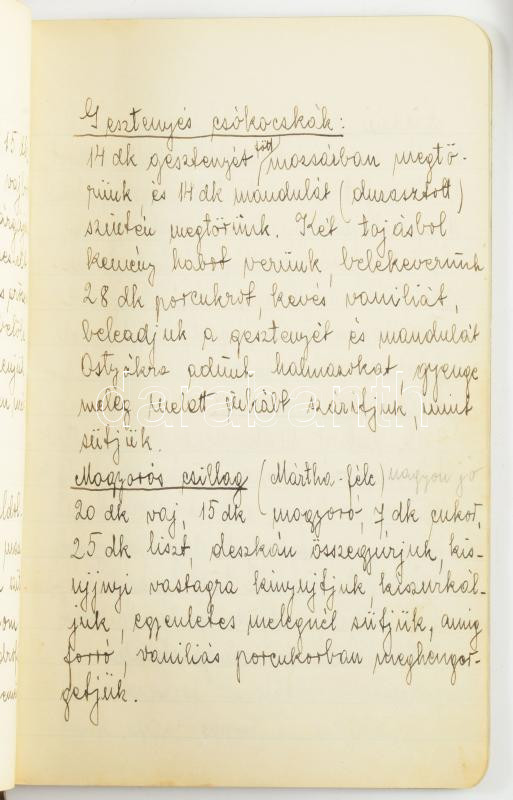 Gesztenyés csókocskák:
14 dk gesztenyét sült mozsárban megtö-
rünk, és 14 dk mandulát (duzasztott)
szintén megtörünk. Két tojásból
kemény habot verünk, belekeverünk
28 dk porcukrot, kevés vaniliát,
beleadjuk a gesztenyét és mandulát
Ostyákra adunk halmazokat, gyenge
meleg mellett inkább szárítjuk, mint
sütjük.
Mogyorós csillag (Mártha-féle) nagyon jó
20 dk vaj, 15 dk mogyoró, 7 dk cukor,
25 dk liszt, deszkán összegyúrjuk, kis-
ujjnyi vastagra kinyujtjuk, kiszurkál-
juk, egyenletes melegnél sütjük, amig
forró, vaniliás porcukorban meghenger-
getjük.
darabanth